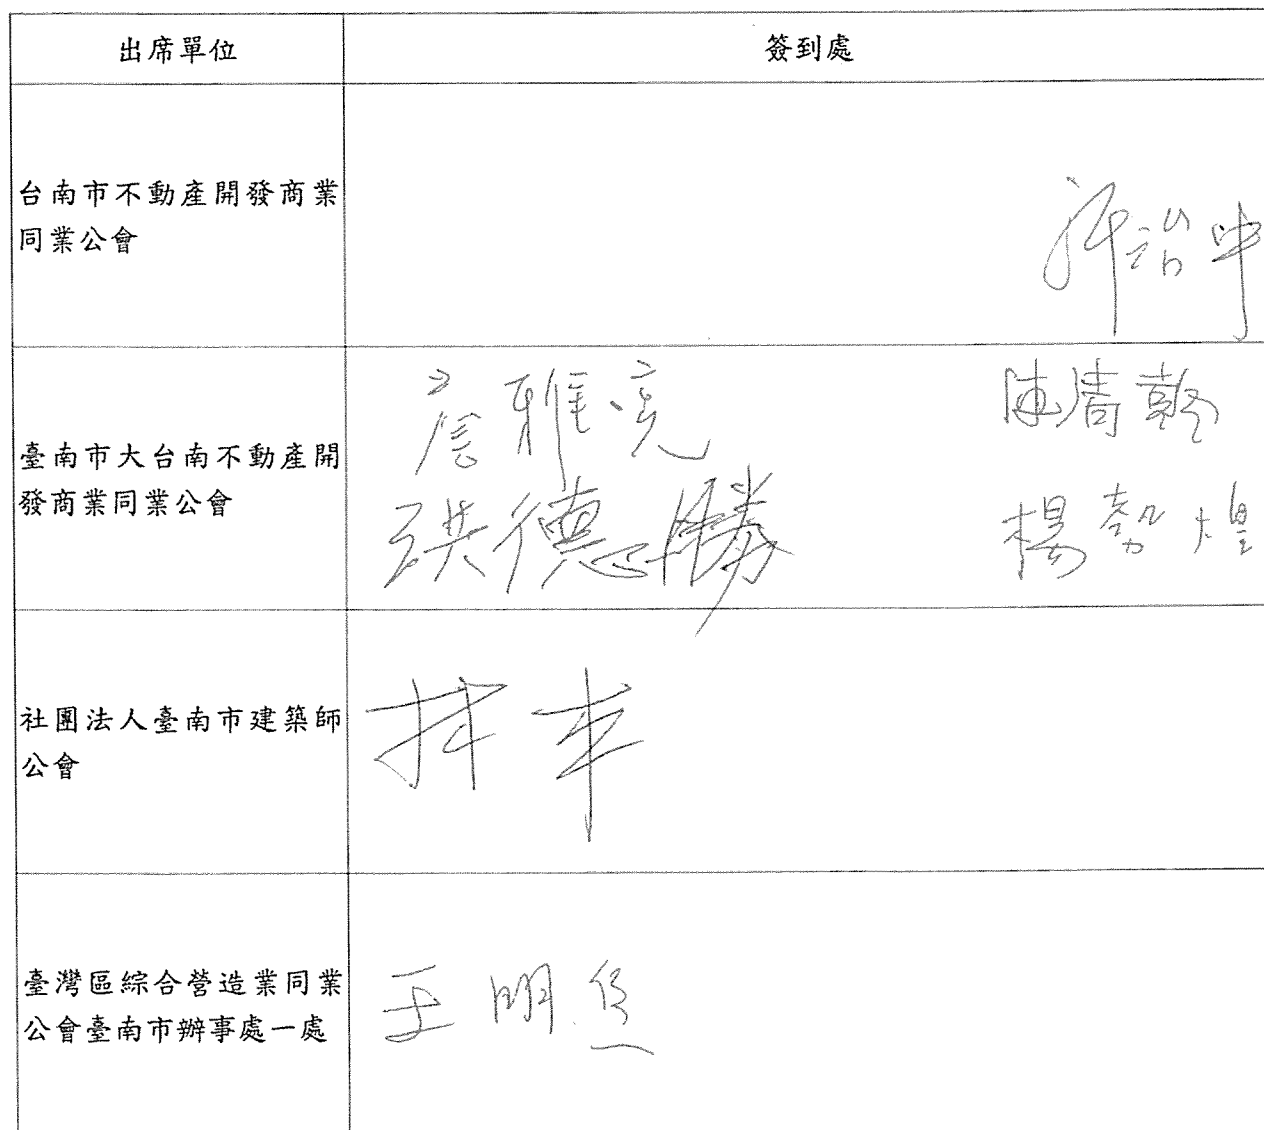 出席單位
簽到處
台南市不動產開發商業
同業公會
臺南市大台南不動產開
發商業同業公會
詹雅亮
洪德勝
楊勢煌
社團法人臺南市建築師
公會
臺灣區綜合營造業同業
公會臺南市辦事處一處
王明